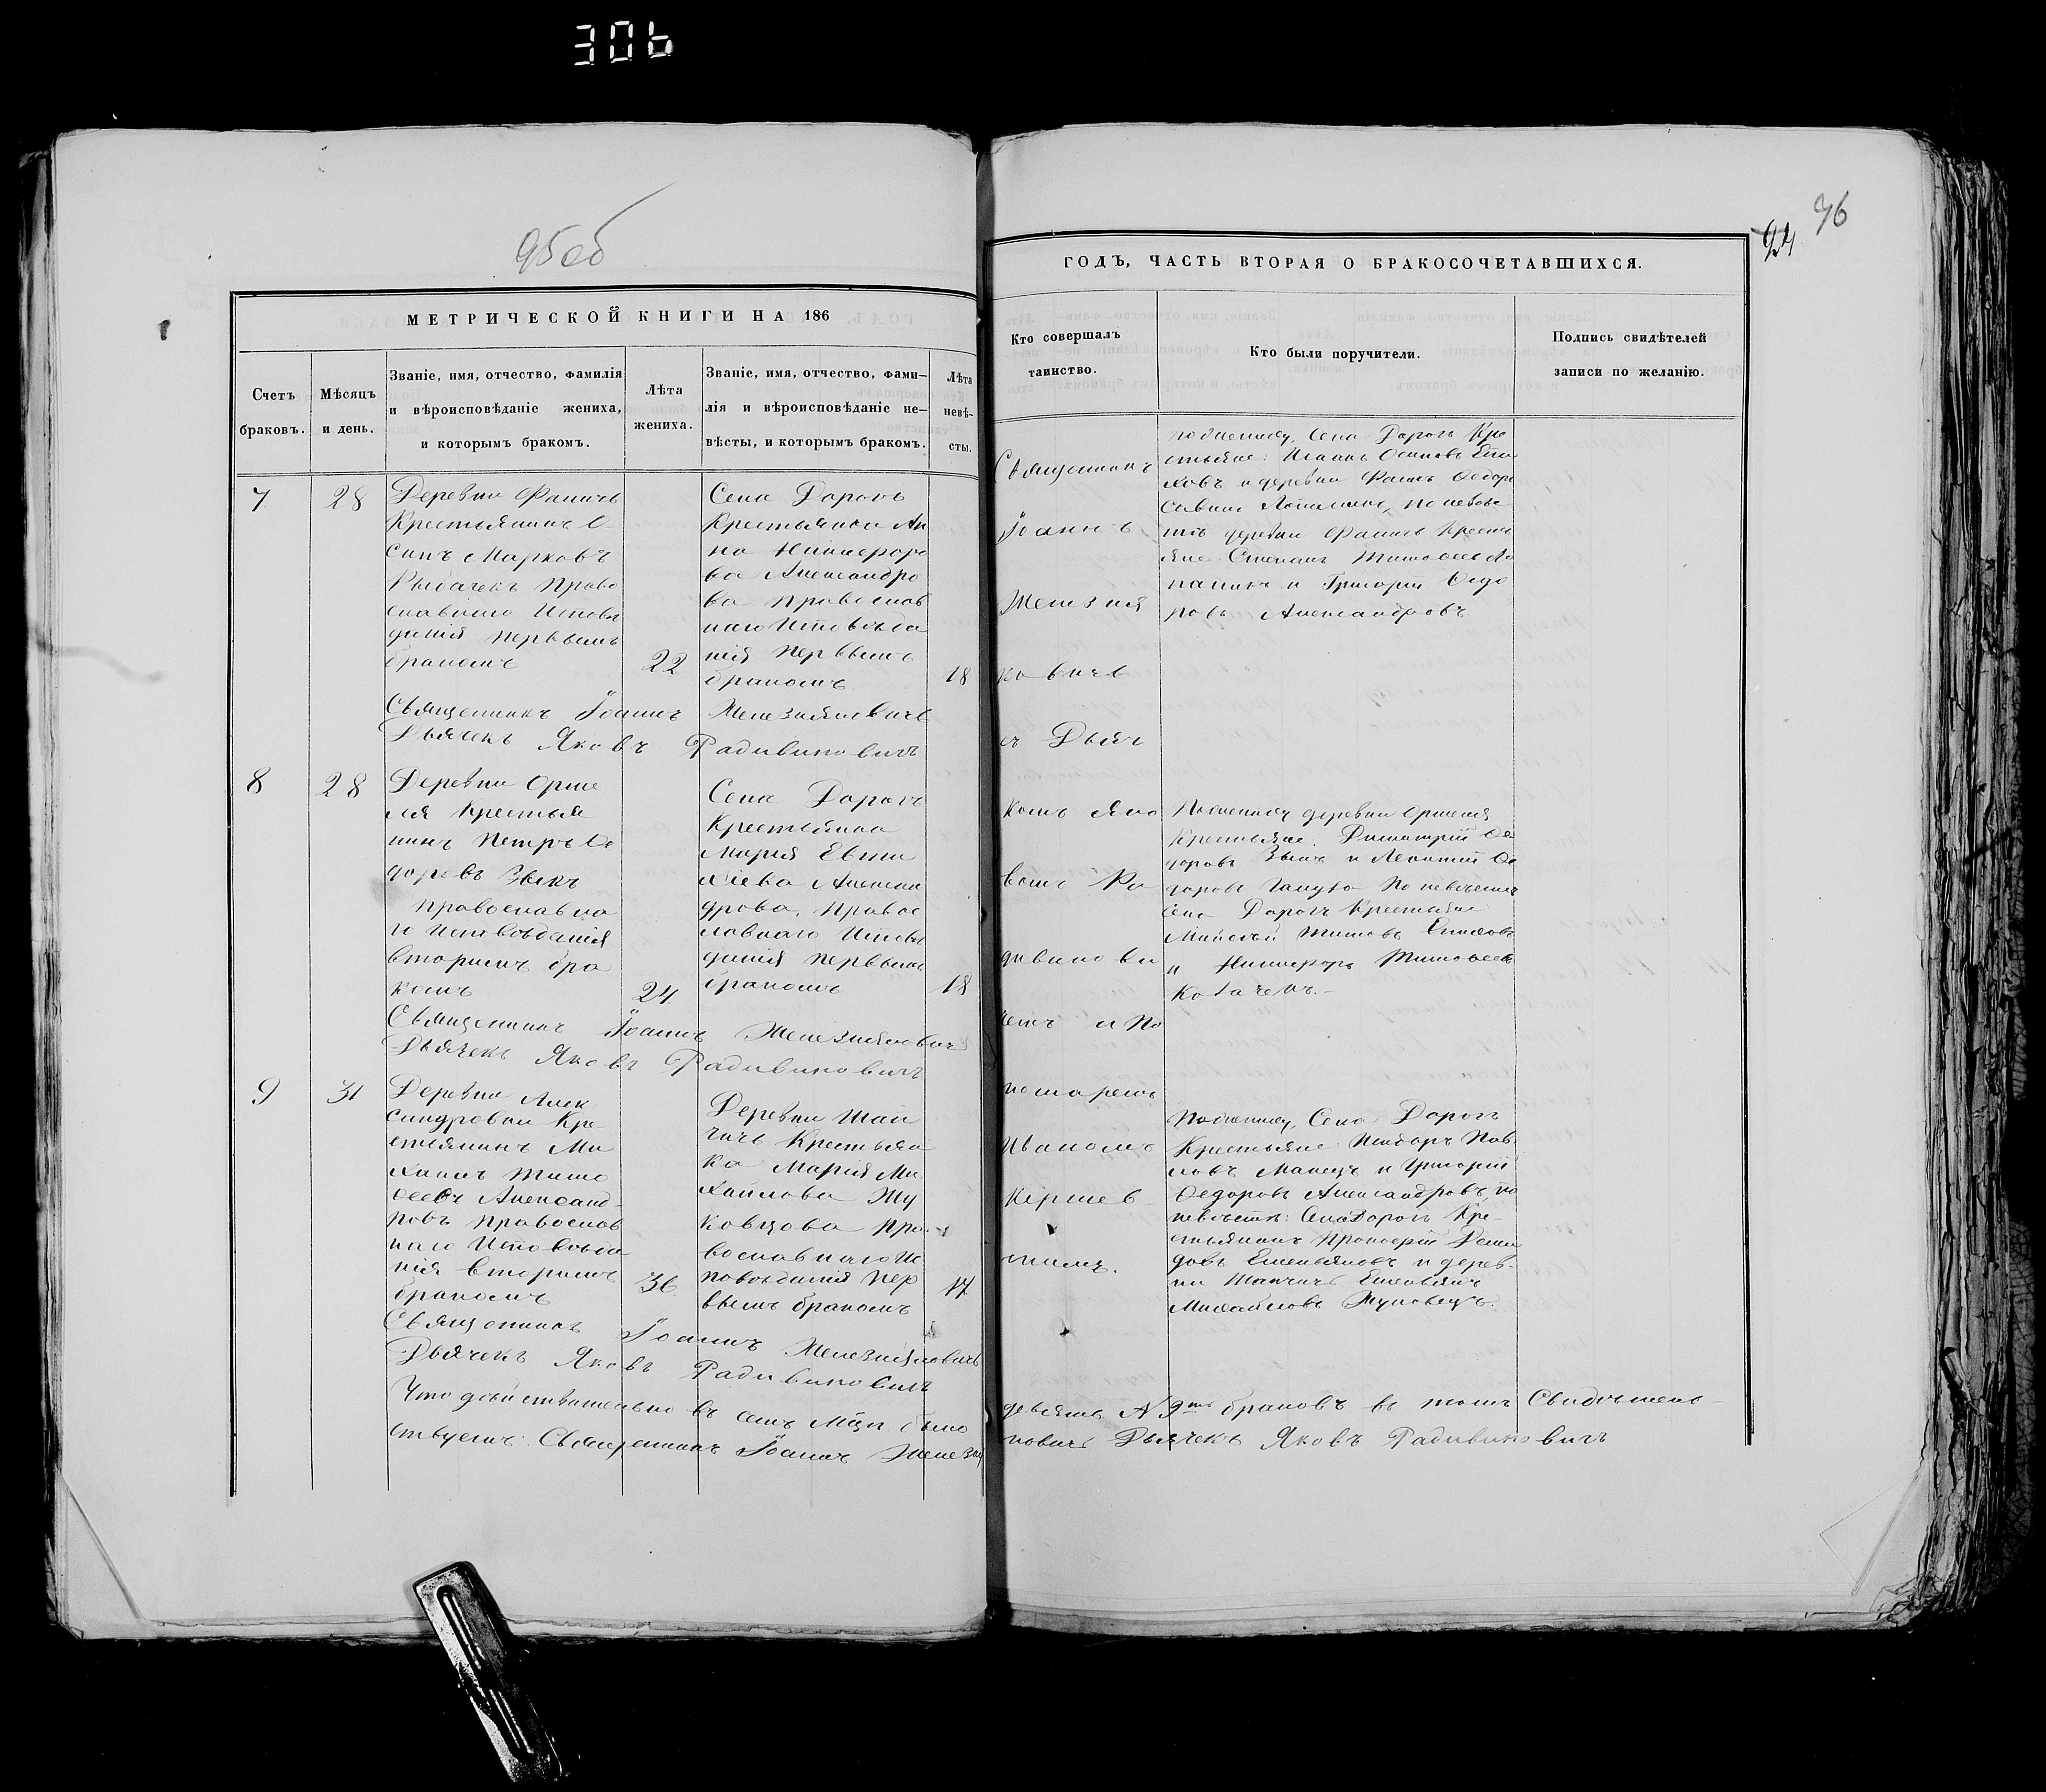 306
95об
96
94
МЕТРИЧЕСКОЙ КНИГИ НА 186
Счетъ браковъ.
Мѣсяцъ и день.
Званіе, имя, отчество, фамилія
и вѣроисповѣданіе жениха,
и которымъ бракомъ.
Лѣта
жениха.
Званіе, имя, отчество, фами–
лія и вѣроисповѣданіе не–
вѣсты, и которымъ бракомъ.
Лѣта
невѣ-
сты.
7
28
Деревни
Крестьянинъ О-
сипъ Марковъ
Рыдачекъ Право
славнаго Исповѣ
данія первымъ
бракомъ
22
Села Дорогъ
Крестьянка Ан
на Никифоро
ва Александро
ва Православ
наго Исповѣда
нія первымъ
бракомъ
18
Священникъ Іоаннъ Желѣзняковичь
Дьячекъ Яковъ Радивиновичъ
8
28
Деревни
Крестья
нинъ Петръ Ѳе
доровъ Зыкъ
православна
го исповѣданія
вторымъ бра
комъ
24
Села Дорогъ
Крестьянка
Марія Евти
хіева Алексан
дрова, Правос
лавнаго Исповѣ
данія первымъ
бракомъ
18
Священникъ Іоаннъ Желѣзняковичъ
Дьячекъ Яковъ Радивиновичъ
9
31
Деревни Алек
сандровки Кре
стьянинъ Ми
хаилъ Тимо
ѳеевъ Александ-
ровъ православ
наго Исповѣда
нія вторымъ
бракомъ
36
Деревни
Крестьян
ка Марія Ми
хайлова Жу
ковцова пра
вославнаго И
повѣданія пер
вымъ бракомъ
17
Священникъ Іоаннъ Желѣзняковичь
Дьячекъ Яковъ Радивиновичъ
Что дѣйствительно въ семъ Мцѣ было
ствуемъ: Священникъ Іоаннъ Желѣзня
ГОДЪ, ЧАСТЬ ВТОРАЯ О БРАКОСОЧЕТАВШИХСЯ.
Кто совершалъ
таинство.
Кто были поручители.
Подпись свидѣтелей
записи по желанію.
Священникъ
Іоаннъ
Желѣзня
ковичь
съ Дьяч
комъ Яко
вомъ Ра
дивинови
чемъ и По
номаремъ
Иваномъ
по жениху, Села Дорогъ Кре
стьяне: Осиповъ
ховъ и деревни Ѳедоръ
по невѣс
тѣ деревни Кресть
яне Степанъ Тимоѳеевъ Ло
и Григорій Ѳедо
ровъ Александровъ
По жениху деревни
Крестьяне: Димитрій Ѳе
доровъ Зыкъ и Леонтій Ѳе
доровъ По невѣстѣ
села Дорогъ Крестьяне
Титовъ
и Никифоръ Тимоѳеевъ
По жениху, Села Дорогъ
Крестьяне Пав
ловъ и Григорій
Ѳедоровъ Александровъ, по
невѣстѣ: Села Дорогъ Кре-
стьянинъ Прокофій
Емельяновъ и дерев-
ни Емельянъ
Михайловъ Жуковецъ.
девять N 9ть браковъ въ томъ Свидѣтель-
ковичь Дьячекъ Яковъ Радивиновичъ